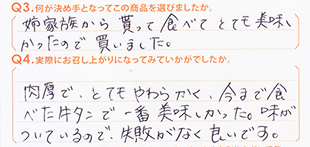 Q3.何が決め手となってこの商品を選びましたか。
姉家族から貰って食べてとても美味し
かったので買いました。
Q4.実際にお召し上がりになってみていかがでしたか。
肉厚で、とてもやわらかく、今まで食
べた牛タンで一番美味しかった。味が
ついているので、失敗がなく良いです。